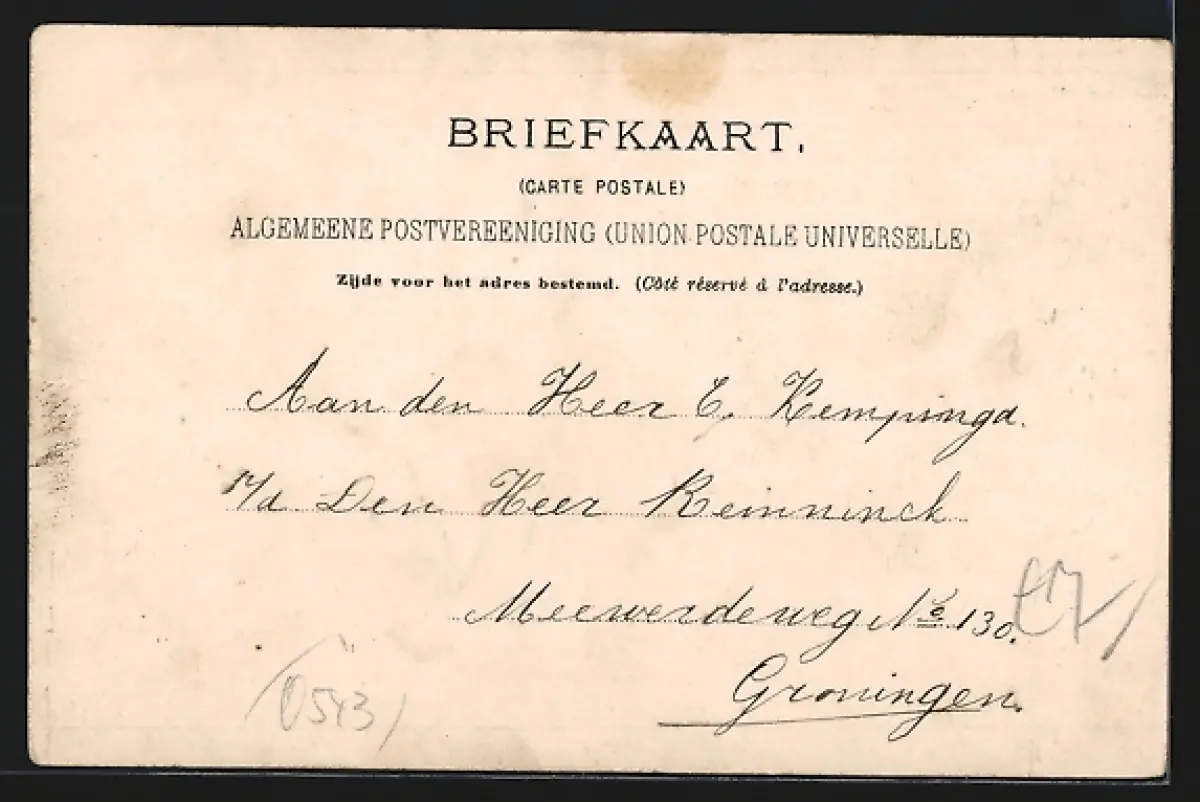 BRIEFKAART.
(CARTE POSTALE)
ALGEMEENE POSTVEREENIGING (UNION POSTALE UNIVERSELLE)
Zijde voor het adres bestemd. (Côté réservé à l'adresse.)
Aan den Heer E. Kempinga.
p/a Den Heer Remninck
Meewerdeweg No 130.
Groningen.
(0543)